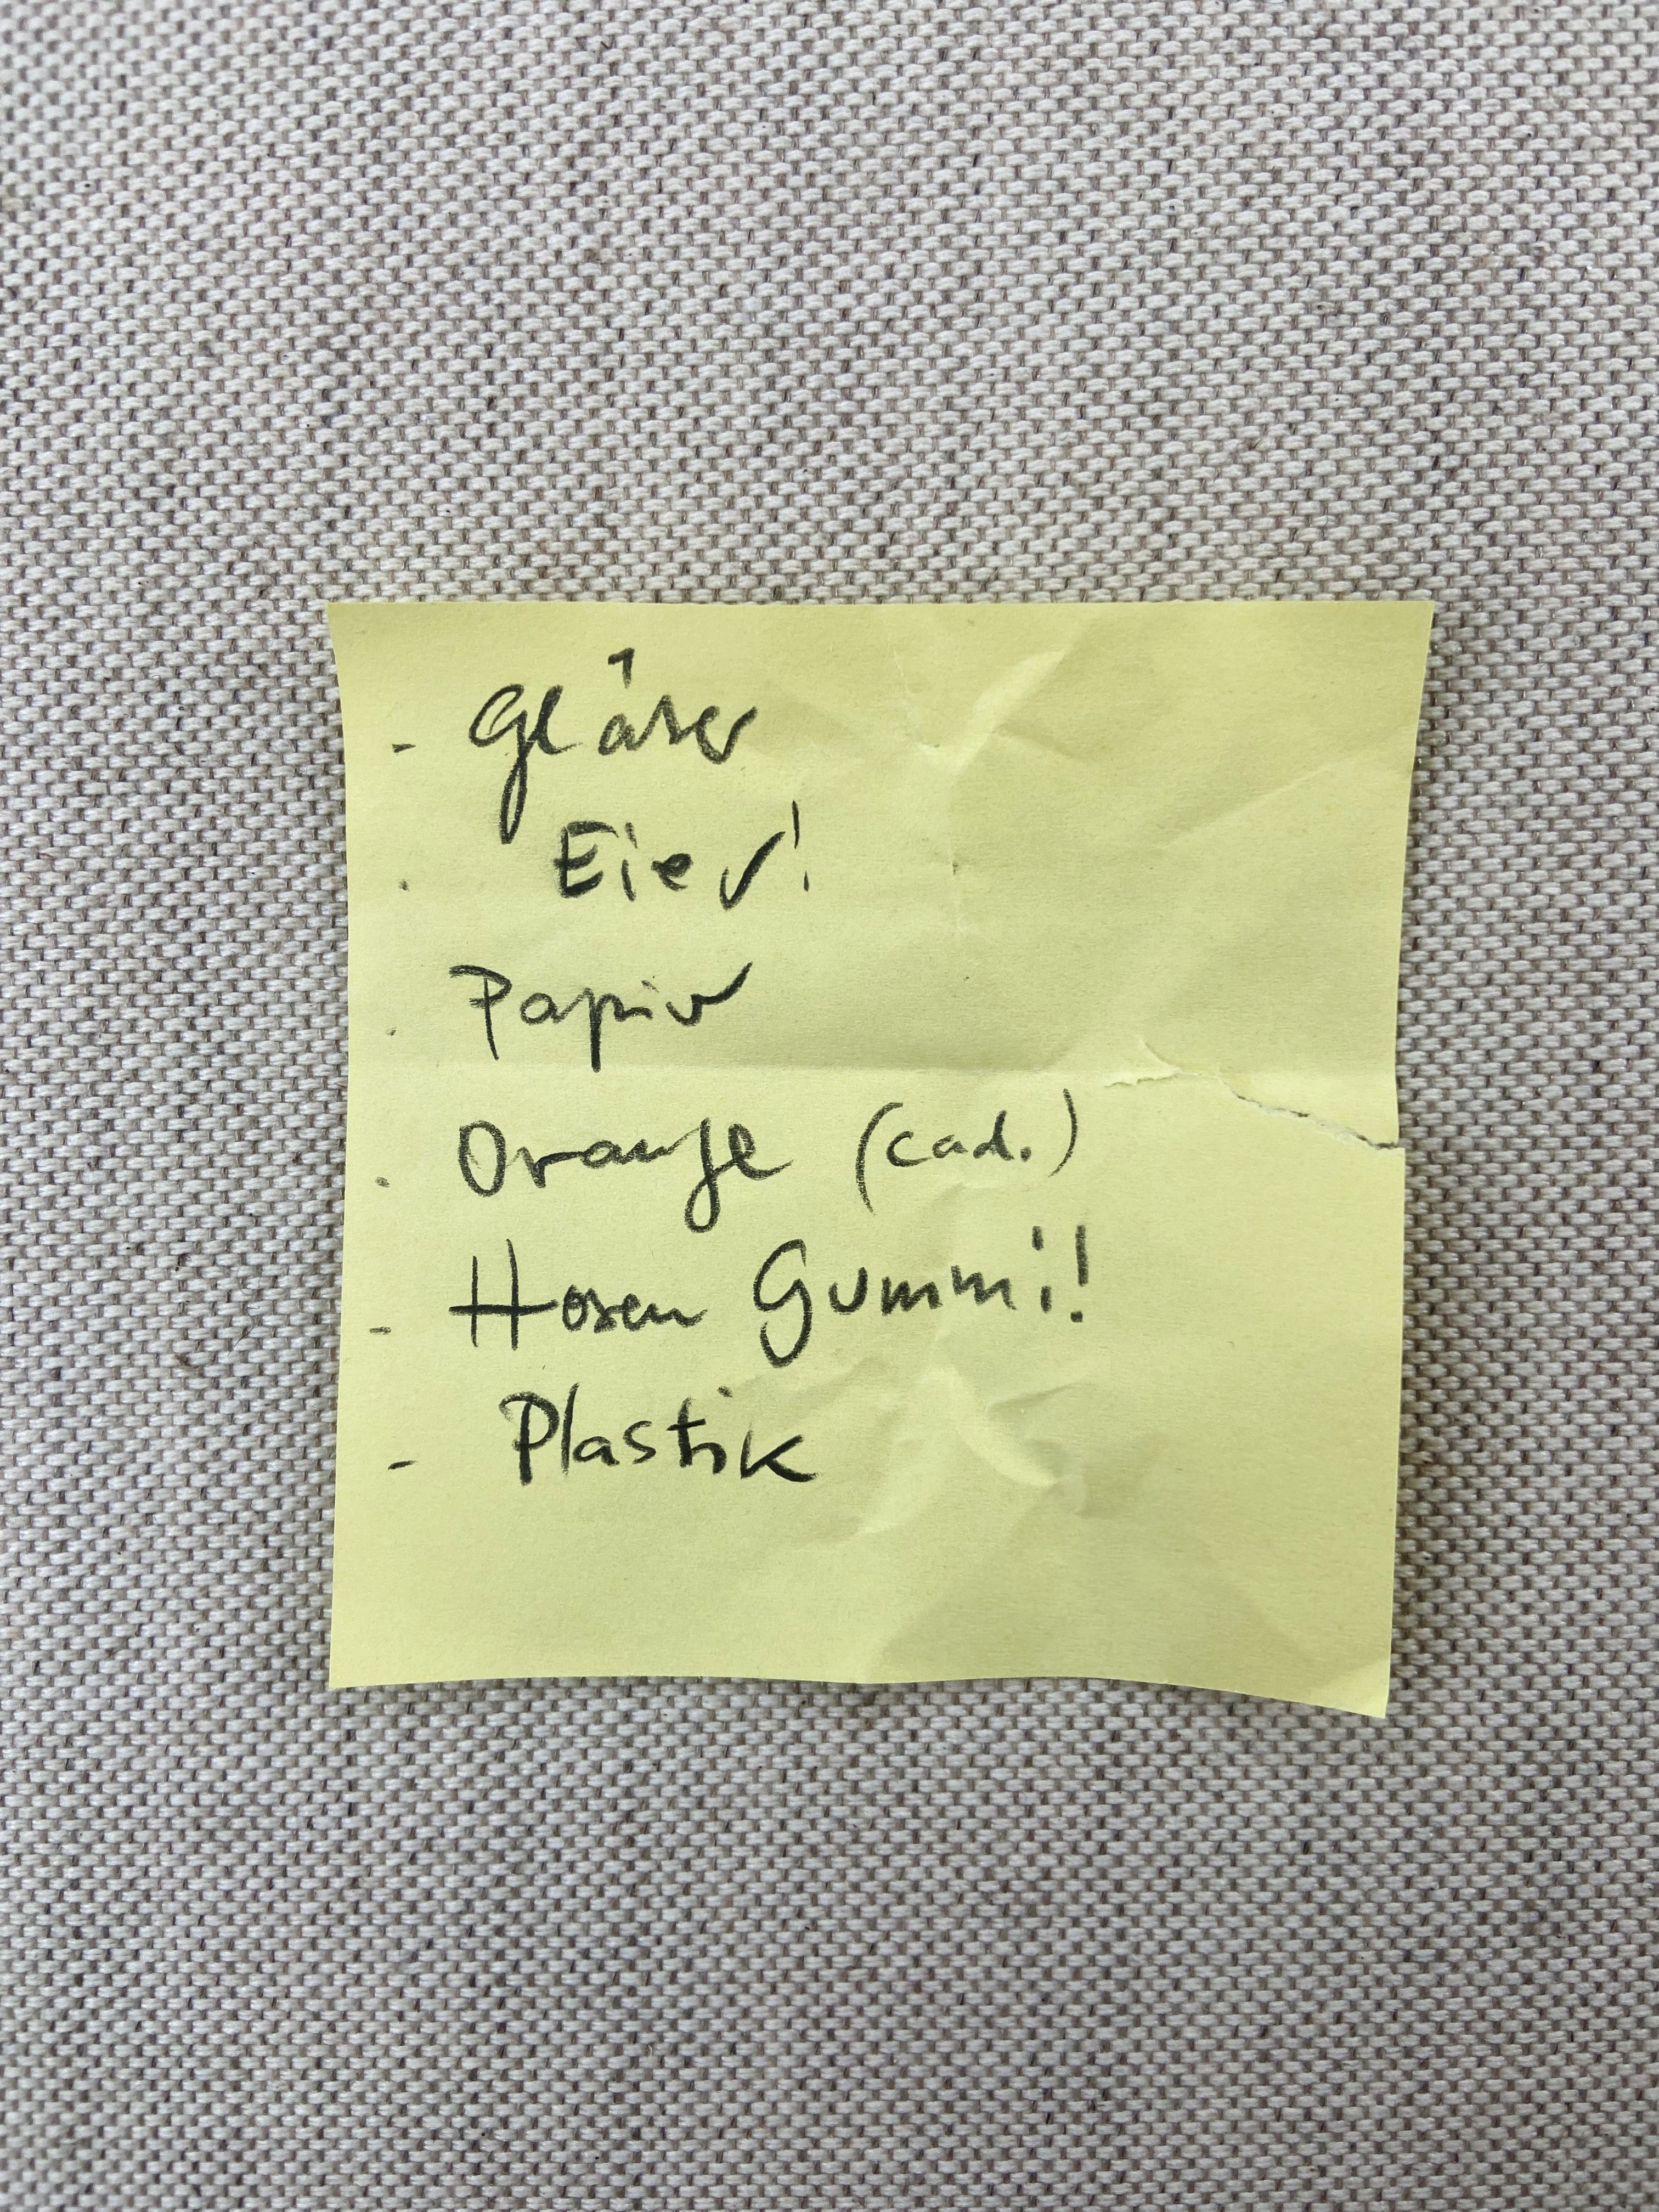 - Gläser
. Eier!
. Papier
. Orange (cad.)
- Hosen Gummi!
- Plastik